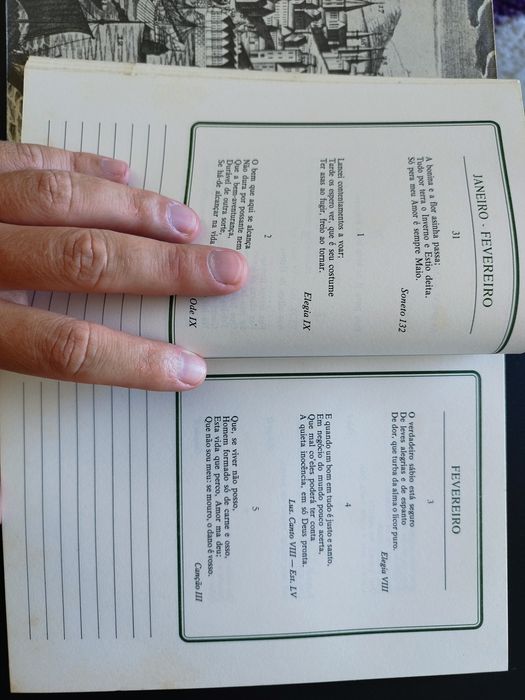 JANEIRO - FEVEREIRO
31
A bonina e a flor asinha passa;
Tudo por terra o Inverno e Estio deita.
Só pera meu Amor é sempre Maio.
Soneto 132
1
Lancei contentamentos a voar;
Tarde os espero ver, que é seu costume
Ter asas ao fugir, freio ao tornar.
Elegia IX
2
O bem que aqui se alcança
Não dura por possante nem
Que a bem-aventurança,
Durável de outra sorte,
Se há-de alcançar na vida
Ode IX
FEVEREIRO
3
O verdadeiro sábio está seguro
De leves alegrias e de espanto
De dor, que turba da alma o licor puro.
Elegia VIII
4
E quando um bom em tudo é justo e santo,
Em negócio do mundo pouco acerta,
Que mal co'eles poderá ter conta
A quieta inocência, em só Deus pronta.
Lus. Canto VIII — Est. LV
5
Que, se viver não posso,
Homem formado só de carne e osso,
Esta vida que perco, Amor ma deu;
Que não sou meu: se mouro, o dano é vosso.
Canção III